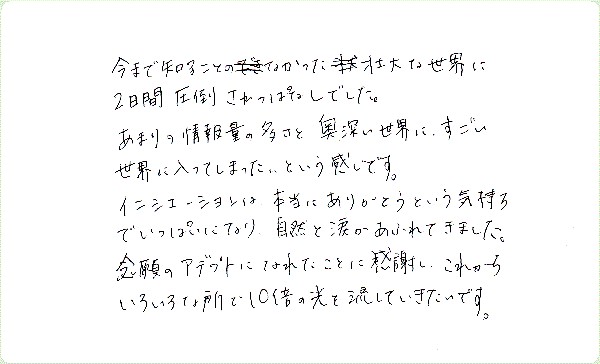 今まで知ることのなかった壮大な世界に
2日間圧倒されっぱなしでした。
あまりの情報量の多さと奥深い世界に、すごい
世界に入ってしまった、、という感じです。
イニシエーションは本当にありがとうという気持ち
でいっぱいになり、自然と涙があふれてきました。
念願のアデプトになれたことに感謝し、これから
いろいろな所で10倍の光を流していきたいです。